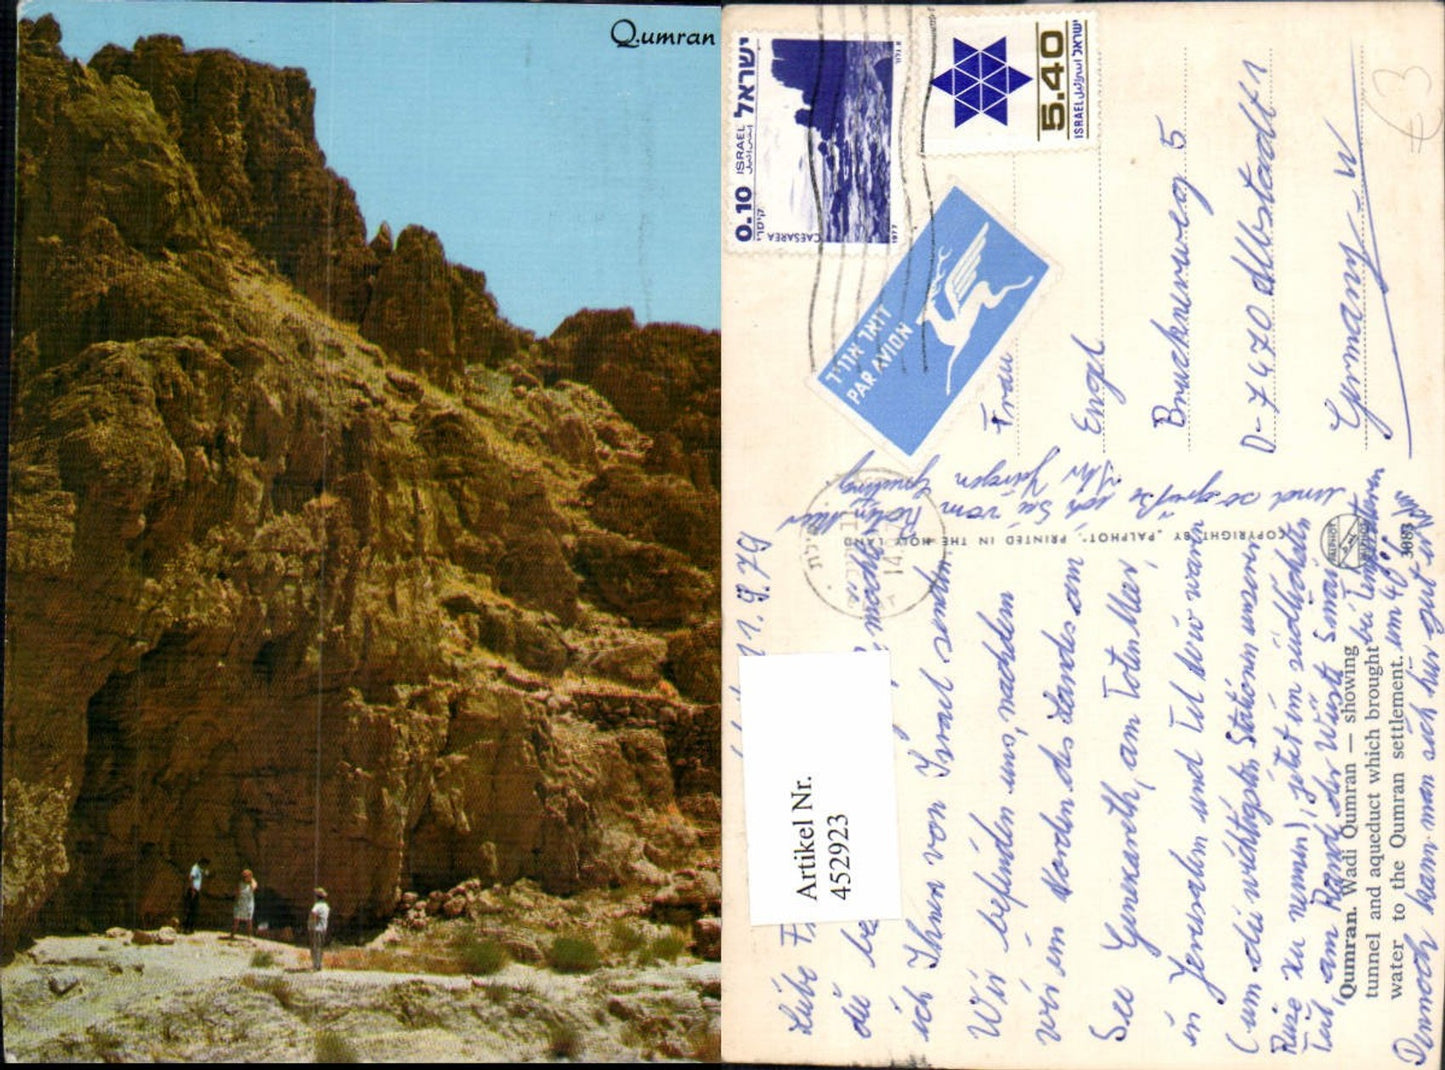 Qumran
ישראל
ISRAEL
0.10
קיסרי
CAESAREA
1977
5.40
ישראל
ISRAEL
דואר אויר
PAR AVION
Frau
Engl
Brucknerweg 5
D-7470 Albstadt 1
Germany-W
€3
11.9.79
Liebe
die
ich Ihnen von Israel senden.
Wir befinden uns, nachdem
wir im Norden des Landes am
See Genezareth, am Toten Meer,
in Jerusalem und Tel Aviv waren
(um die wichtigsten Stationen unserer
Reise zu nennen), jetzt im südlichsten
Teil, am Rand der Wüste Sinai
bei Temperaturen um 40°.
Dennoch kann man sich hier gut erholen
und so grüße
ich Sie vom Roten Meer
Ihr Jürgen
COPYRIGHT BY „PALPHOT" PRINTED IN THE HOLY LAND
PALPHOT
3083
Qumran. Wadi Qumran — showing
tunnel and aqueduct which brought
water to the Qumran settlement.
Artikel Nr.
452923